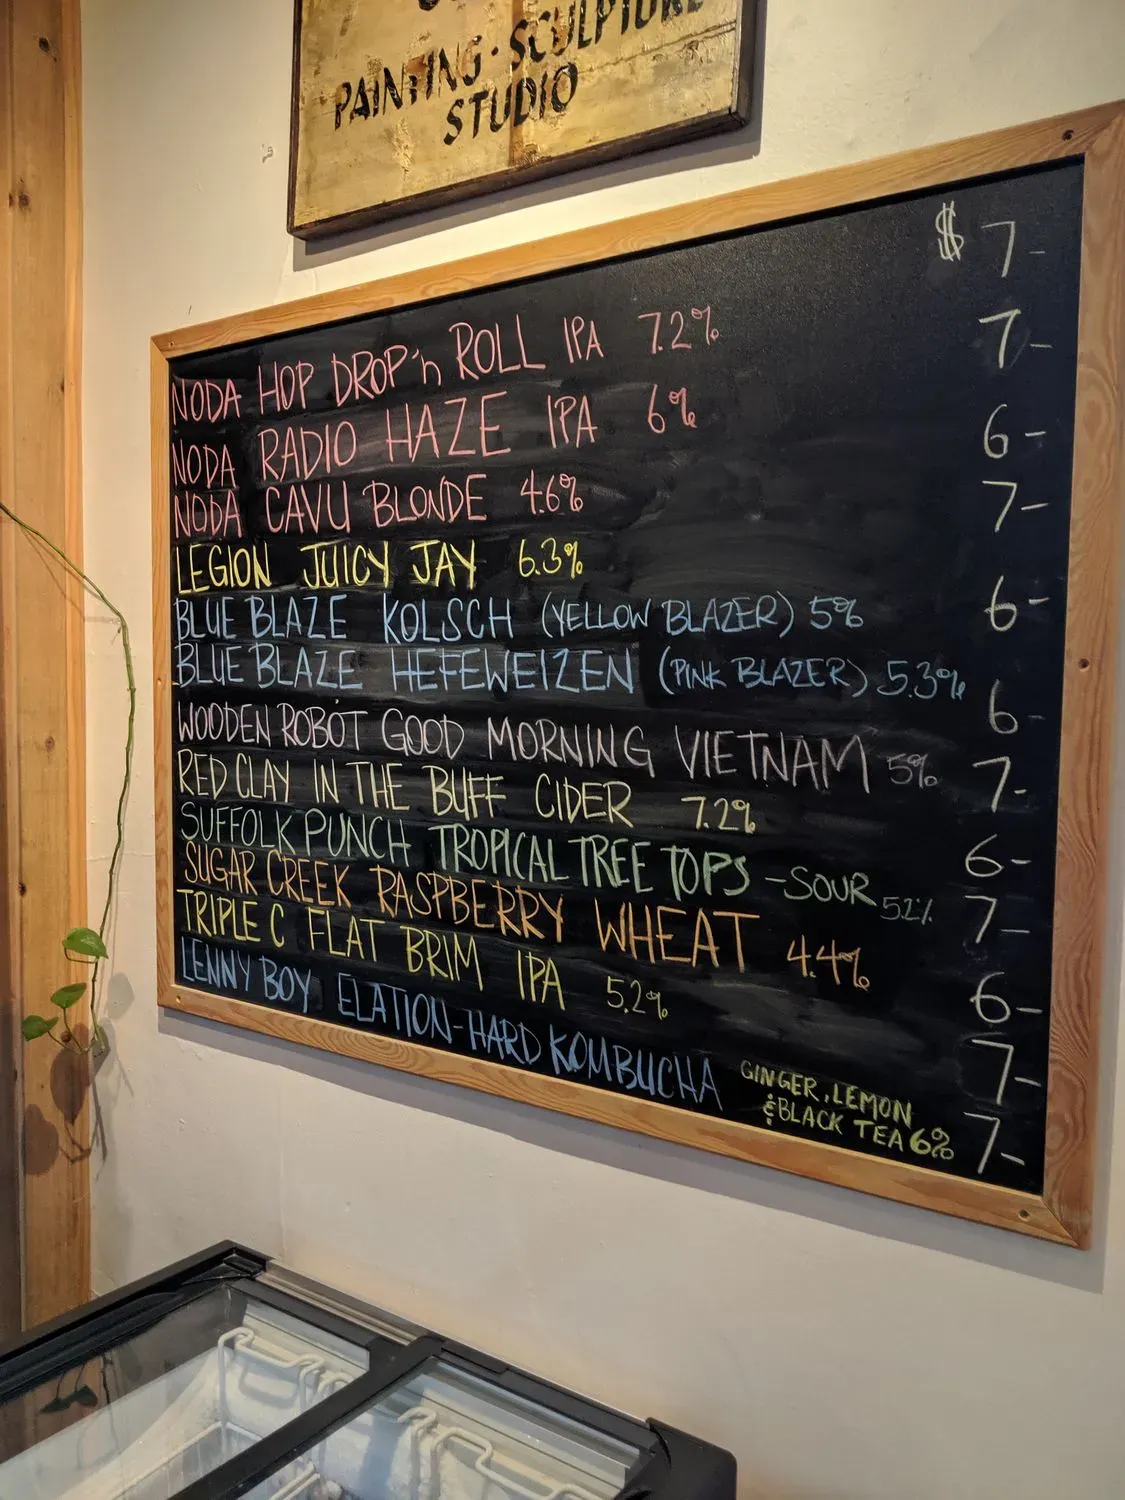 PAINTING · SCULPTURE
STUDIO
NODA HOP DROP 'n ROLL IPA 7.2% $ 7-
NODA RADIO HAZE IPA 6% 7-
NODA CAVU BLONDE 4.6% 6-
LEGION JUICY JAY 6.3% 7-
BLUE BLAZE KOLSCH (YELLOW BLAZER) 5% 6-
BLUE BLAZE HEFEWEIZEN (PINK BLAZER) 5.3% 6-
WOODEN ROBOT GOOD MORNING VIETNAM 5% 7-
RED CLAY IN THE BUFF CIDER 7.2% 6-
SUFFOLK PUNCH TROPICAL TREE TOPS - SOUR 5.2% 7-
SUGAR CREEK RASPBERRY WHEAT 4.4% 6-
TRIPLE C FLAT BRIM IPA 5.2% 7-
LENNY BOY ELATION-HARD KOMBUCHA GINGER, LEMON & BLACK TEA 6% 7-